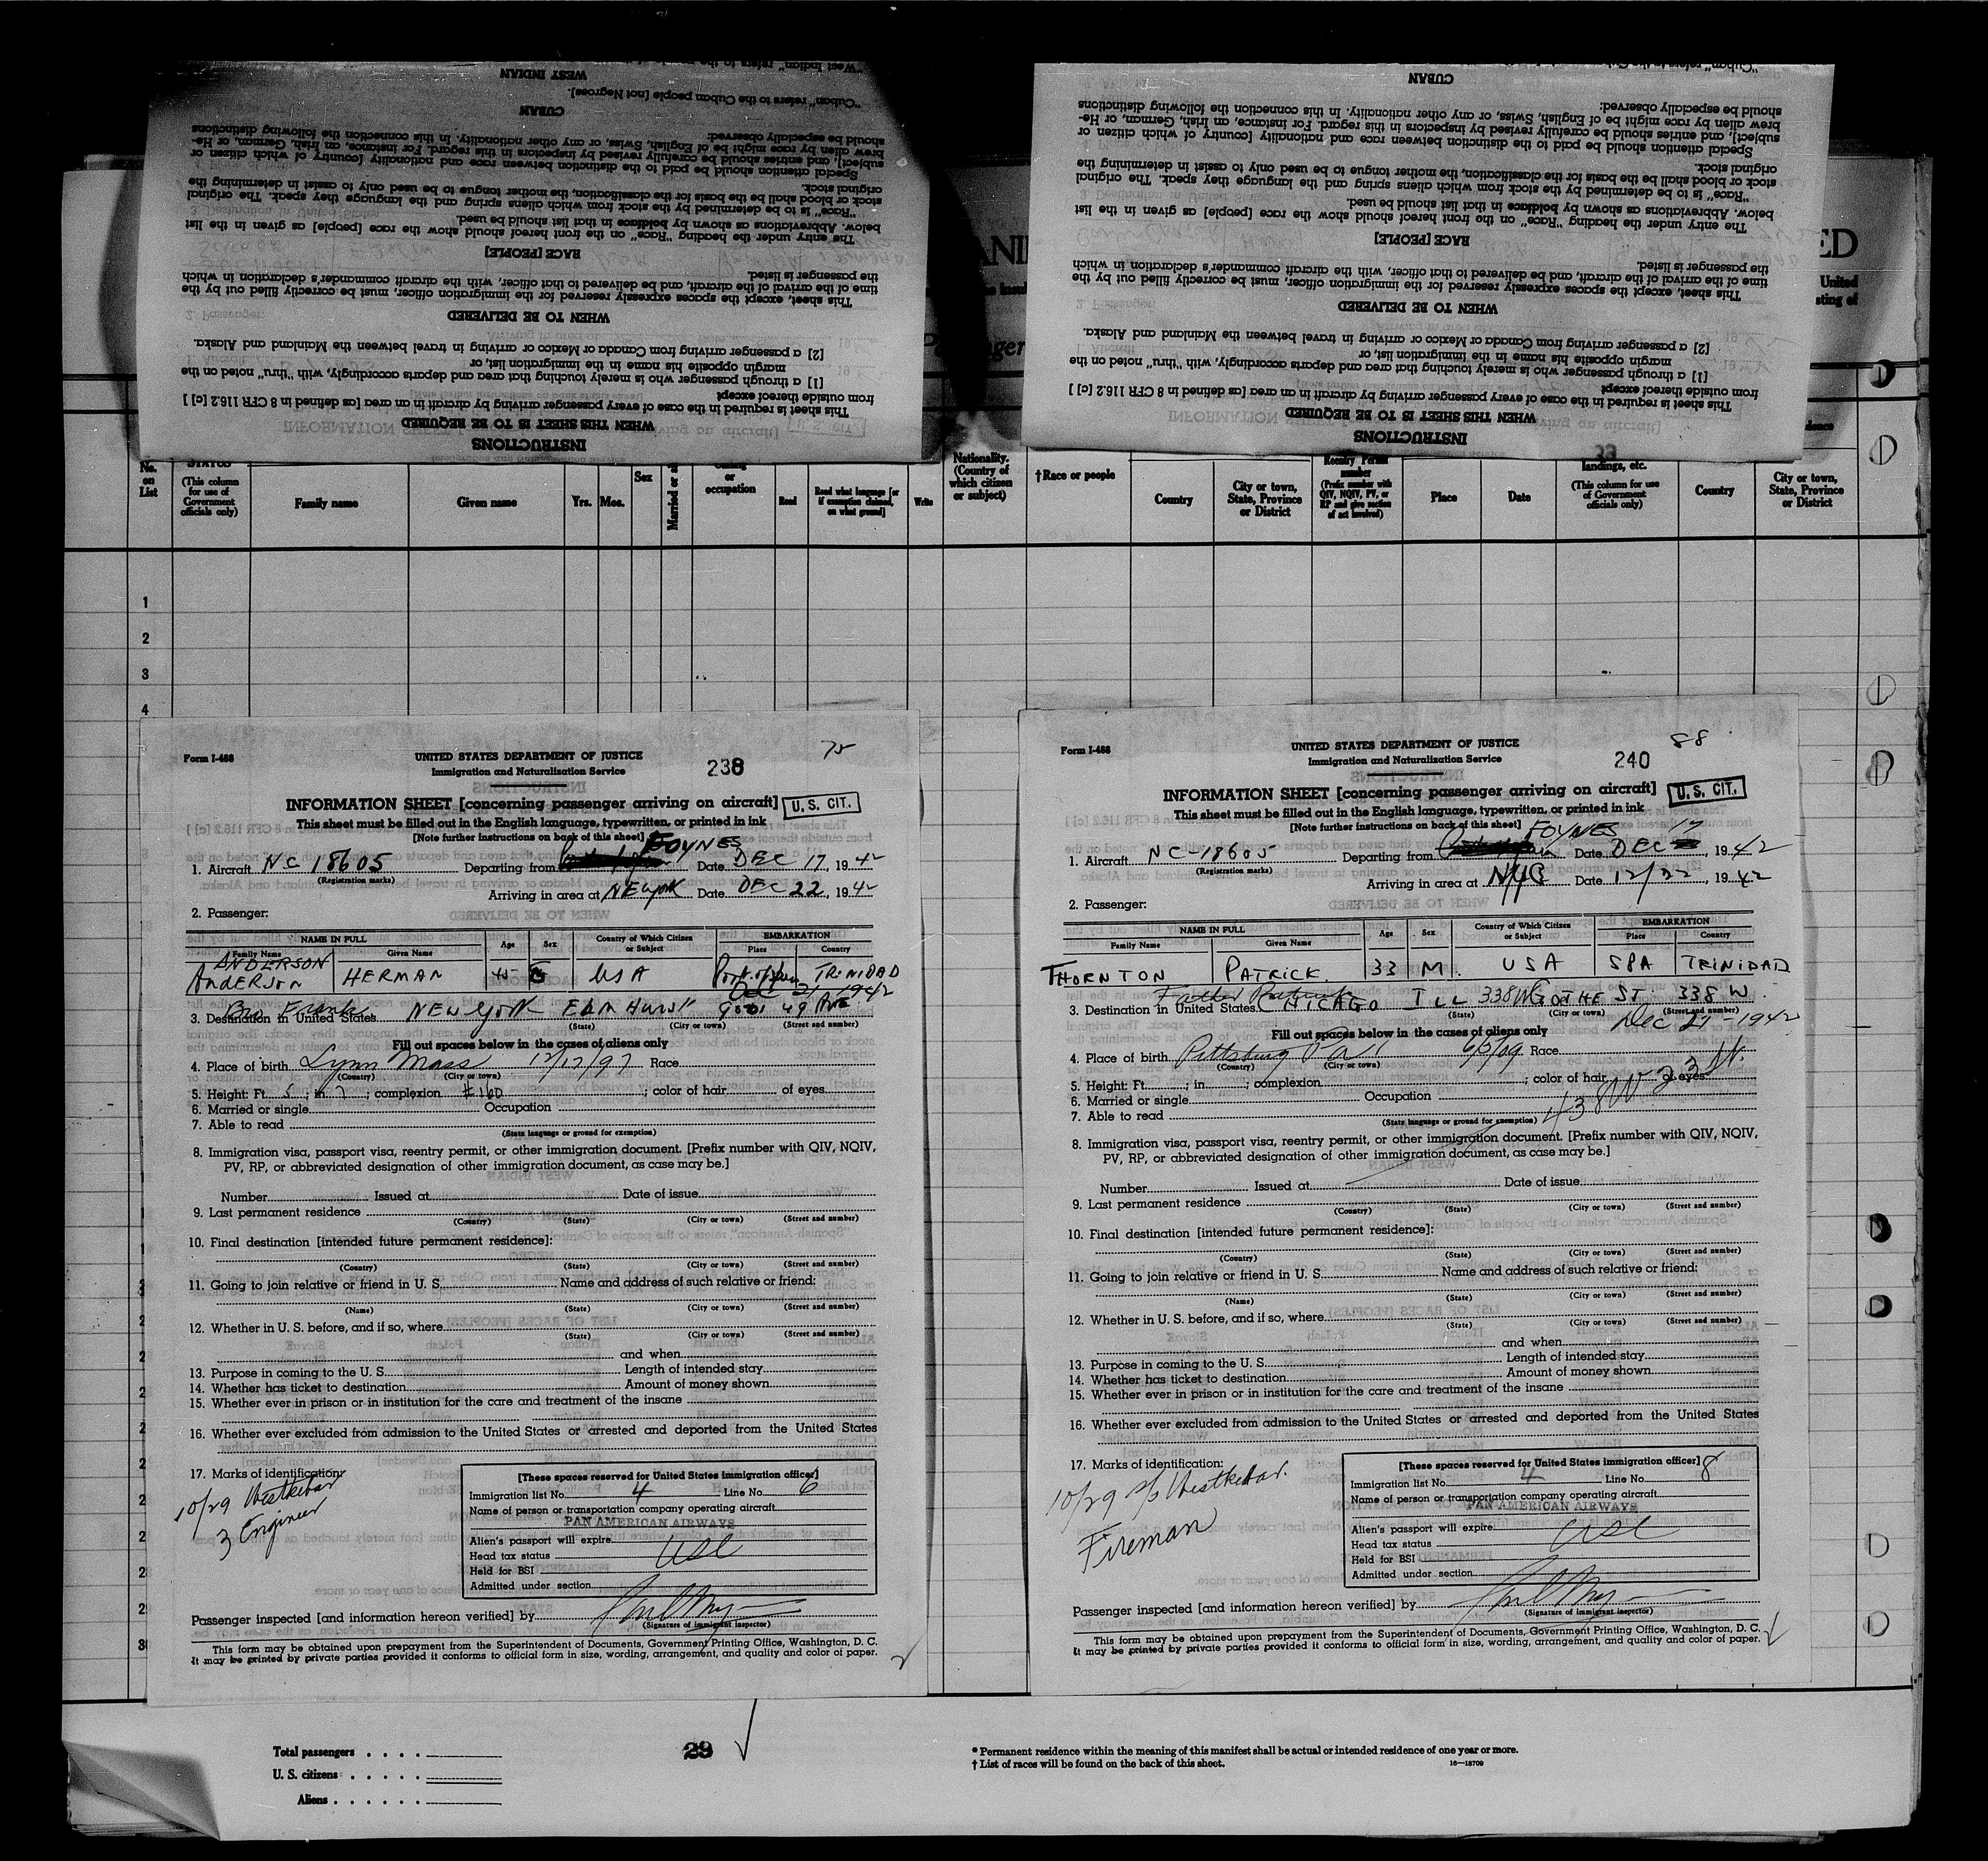 "West Indian" refers to the
WEST INDIAN
"Cuban" refers to the Cuban people [not Negroes].
CUBAN
should be especially observed:
brew alien by race might be of English, Swiss, or any other nationality. In this connection the following distinctions
subject], and entries should be carefully revised by inspectors in this regard. For instance, an Irish, German, or He-
Special attention should be paid to the distinction between race and nationality [country of which citizen or
original stock.
stock or blood shall be the basis for the classification, the mother tongue to be used only to assist in determining the
"Race" is to be determined by the stock from which aliens spring and the language they speak. The original
below. Abbreviations as shown by boldface in that list should be used.
The entry under the heading "Race" on the front hereof should show the race [people] as given in the list
RACE [PEOPLE]
the passenger is listed.
time of the arrival of the aircraft, and be delivered to that officer, with the aircraft commander's declaration in which
This sheet, except the spaces expressly reserved for the immigration officer, must be correctly filled out by the
WHEN TO BE DELIVERED
[2] a passenger arriving from Canada or Mexico or arriving in travel between the Mainland and Alaska.
margin opposite his name in the immigration list, or
[1] a through passenger who is merely touching that area and departs accordingly, with "thru" noted on the
from outside thereof except
This sheet is required in the case of every passenger arriving by aircraft in an area [as defined in 8 CFR 116.2 [c] ]
WHEN THIS SHEET IS TO BE REQUIRED
INSTRUCTIONS
CUBAN
should be especially observed:
brew alien by race might be of English, Swiss, or any other nationality. In this connection the following distinctions
subject], and entries should be carefully revised by inspectors in this regard. For instance, an Irish, German, or He-
Special attention should be paid to the distinction between race and nationality [country of which citizen or
original stock.
stock or blood shall be the basis for the classification, the mother tongue to be used only to assist in determining the
"Race" is to be determined by the stock from which aliens spring and the language they speak. The original
below. Abbreviations as shown by boldface in that list should be used.
The entry under the heading "Race" on the front hereof should show the race [people] as given in the list
RACE [PEOPLE]
the passenger is listed.
time of the arrival of the aircraft, and be delivered to that officer, with the aircraft commander's declaration in which
This sheet, except the spaces expressly reserved for the immigration officer, must be correctly filled out by the
WHEN TO BE DELIVERED
[2] a passenger arriving from Canada or Mexico or arriving in travel between the Mainland and Alaska.
margin opposite his name in the immigration list, or
[1] a through passenger who is merely touching that area and departs accordingly, with "thru" noted on the
from outside thereof except
This sheet is required in the case of every passenger arriving by aircraft in an area [as defined in 8 CFR 116.2 [c] ]
WHEN THIS SHEET IS TO BE REQUIRED
INSTRUCTIONS
ED
United
No. on List
(This column for use of Government officials only)
Family name
Given name
Yrs. Mos.
Sex
or occupation
Read
Read what language [or if exemption claimed, on what ground]
Write
Nationality. (Country of which citizen or subject)
†Race or people
Country
City or town, State, Province or District
Reentry Permit number (Prefix number with QIV, NQIV, PV, or RP and give section of act involved)
Place
Date
landings, etc. (This column for use of Government officials only)
Country
City or town, State, Province or District
1
2
3
4
Form I-466
UNITED STATES DEPARTMENT OF JUSTICE
Immigration and Naturalization Service
238
75
INFORMATION SHEET [concerning passenger arriving on aircraft] U. S. CIT.
This sheet must be filled out in the English language, typewritten, or printed in ink
[Note further instructions on back of this sheet]
1. Aircraft NC 18605 Departing from FOYNES Date DEC 17, 1942
(Registration marks)
Arriving in area at NEW YORK Date DEC 22, 1942
2. Passenger:
NAME IN FULL Age Sex Country of Which Citizen or Subject EMBARKATION
Family Name Given Name Place Country
ANDERSON
ANDERSON HERMAN 45 USA Port of Spain TRINIDAD
Dec 21 1942
Bro Frank
3. Destination in United States NEW YORK ELMHURST 9001 49 AVE
(State) (City or town) (Street and number)
Fill out spaces below in the cases of aliens only
4. Place of birth Lynn Mass 12/17/97 Race
(Country) (City or town)
5. Height: Ft. 5; in 7; complexion #160; color of hair of eyes
6. Married or single Occupation
7. Able to read
(State language or ground for exemption)
8. Immigration visa, passport visa, reentry permit, or other immigration document. [Prefix number with QIV, NQIV,
PV, RP, or abbreviated designation of other immigration document, as case may be.]
Number Issued at Date of issue
9. Last permanent residence
(Country) (State) (City or town) (Street and number)
10. Final destination [intended future permanent residence]:
(Country) (State) (City or town) (Street and number)
11. Going to join relative or friend in U. S. Name and address of such relative or friend:
(Name) (State) (City or town) (Street and number)
12. Whether in U. S. before, and if so, where
(State) (City or town) (Street and number)
and when
13. Purpose in coming to the U. S. Length of intended stay
14. Whether has ticket to destination Amount of money shown
15. Whether ever in prison or in institution for the care and treatment of the insane
16. Whether ever excluded from admission to the United States or arrested and deported from the United States
17. Marks of identification:
10/29 Westkebar
3 Engineer
[These spaces reserved for United States immigration officer]
Immigration list No. 4 Line No. 6
Name of person or transportation company operating aircraft
PAN AMERICAN AIRWAYS
Alien's passport will expire
Head tax status USC
Held for BSI
Admitted under section
Passenger inspected [and information hereon verified] by
(Signature of immigrant inspector)
This form may be obtained upon prepayment from the Superintendent of Documents, Government Printing Office, Washington, D. C.
It may be printed by private parties provided it conforms to official form in size, wording, arrangement, and quality and color of paper.
Form I-466
UNITED STATES DEPARTMENT OF JUSTICE
Immigration and Naturalization Service
240
88
INFORMATION SHEET [concerning passenger arriving on aircraft] U. S. CIT.
This sheet must be filled out in the English language, typewritten, or printed in ink
[Note further instructions on back of this sheet]
1. Aircraft NC-18605 Departing from FOYNES Date DEC 17, 1942
(Registration marks)
Arriving in area at NYC Date 12/22, 1942
2. Passenger:
NAME IN FULL Age Sex Country of Which Citizen or Subject EMBARKATION
Family Name Given Name Place Country
THORNTON PATRICK 33 M. USA SPA TRINIDAD
Father Patrick
3. Destination in United States CHICAGO ILL 338 W GOETHE ST. 338 W.
(State) (City or town) (Street and number)
Dec 21-1942
Fill out spaces below in the cases of aliens only
4. Place of birth Pittsburg Pa 6/5/09 Race
(Country) (City or town)
5. Height: Ft. ; in ; complexion ; color of hair of eyes
438 W 23 St.
6. Married or single Occupation
7. Able to read
(State language or ground for exemption)
8. Immigration visa, passport visa, reentry permit, or other immigration document. [Prefix number with QIV, NQIV,
PV, RP, or abbreviated designation of other immigration document, as case may be.]
Number Issued at Date of issue
9. Last permanent residence
(Country) (State) (City or town) (Street and number)
10. Final destination [intended future permanent residence]:
(Country) (State) (City or town) (Street and number)
11. Going to join relative or friend in U. S. Name and address of such relative or friend:
(Name) (State) (City or town) (Street and number)
12. Whether in U. S. before, and if so, where
(State) (City or town) (Street and number)
and when
13. Purpose in coming to the U. S. Length of intended stay
14. Whether has ticket to destination Amount of money shown
15. Whether ever in prison or in institution for the care and treatment of the insane
16. Whether ever excluded from admission to the United States or arrested and deported from the United States
17. Marks of identification:
10/29 S/S Westkebar.
Fireman
[These spaces reserved for United States immigration officer]
Immigration list No. 4 Line No. 8
Name of person or transportation company operating aircraft
PAN AMERICAN AIRWAYS
Alien's passport will expire
Head tax status USC
Held for BSI
Admitted under section
Passenger inspected [and information hereon verified] by
(Signature of immigrant inspector)
This form may be obtained upon prepayment from the Superintendent of Documents, Government Printing Office, Washington, D. C.
It may be printed by private parties provided it conforms to official form in size, wording, arrangement, and quality and color of paper.
30
Total passengers . . . .
U. S. citizens . . . . .
Aliens . . . . . .
29
* Permanent residence within the meaning of this manifest shall be actual or intended residence of one year or more.
† List of races will be found on the back of this sheet.
16—18709